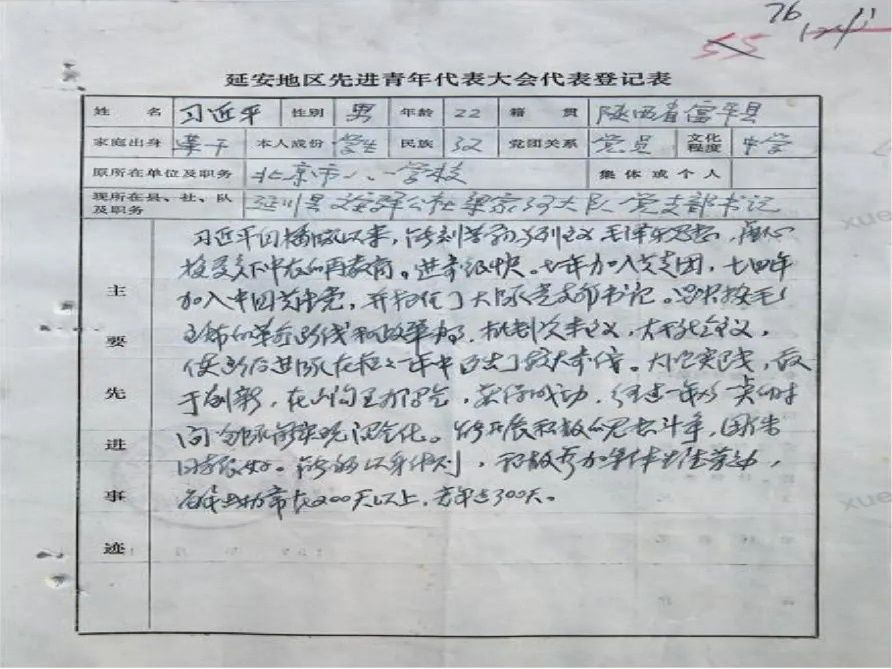 76
55
延安地区先进青年代表大会代表登记表
姓 名 习近平 性别 男 年龄 22 籍 贯 陕西省富平县
家庭出身 革干 本人成份 学生 民族 汉 党团关系 党员 文化程度 中学
原所在单位及职务 北京市八一学校 集体或个人
现所在县、社、队及职务 延川县文安驿公社梁家河大队党支部书记
主要先进事迹
习近平同 以来,能刻苦学习马列主义、毛泽东思想,虚心
接受贫下中农的再教育。进步很快。七 年加入共青团,七四年
加入中国共产党,并担任了大队党支部书记。坚决按毛
主席的革命路线和政策办事,批判资本主义,大干社会主义,
使 后进队在 一年中 出了较大 。大胆实践,敢
于创新,在山沟里办沼气,获得成功,经过一年 时
间 实现沼气化。能开展积极的思想斗争,团结
同志很好。能够以身作则,积极参加集体生产劳动,
在200天以上,去年达300天。
xue
xue